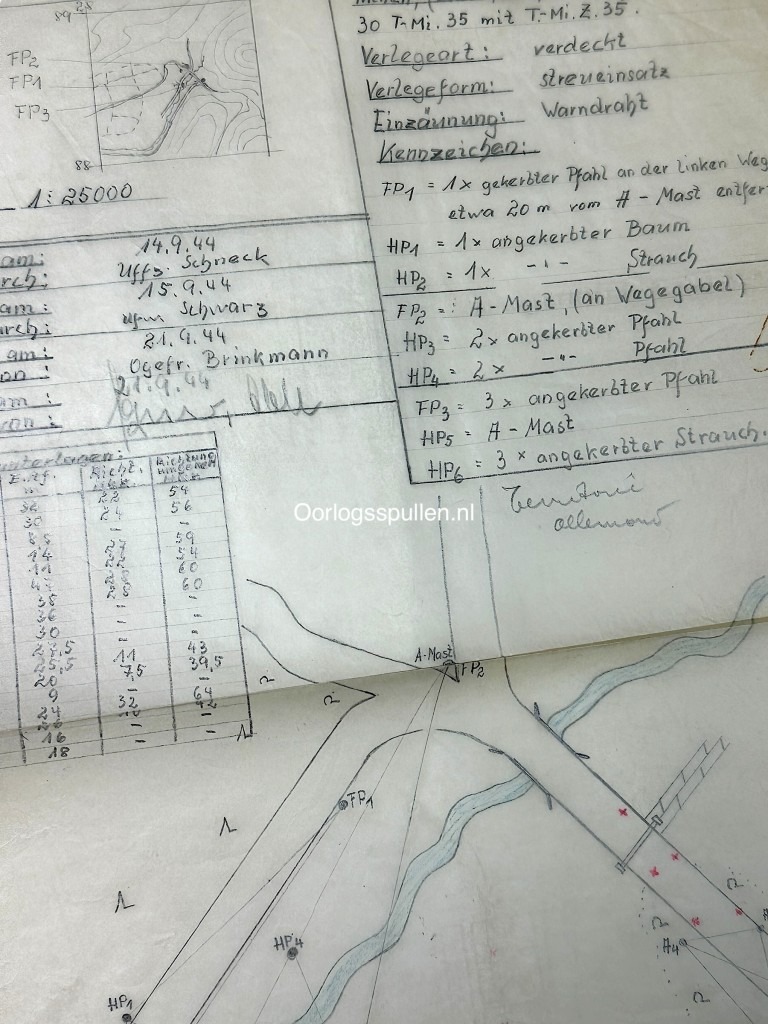 89 28
FP2
FP1
FP3
88
1:25000
30 T-Mi. 35 mit T.-Mi.Z.35.
Verlegeart: verdeckt
Verlegeform: Streueinsatz
Einzäunung: Warndraht
Kennzeichen:
FP1 = 1x gekerbter Pfahl an der linken Weg
etwa 20 m vom A-Mast entfer
HP1 = 1x angekerbter Baum
HP2 = 1x -"- Strauch
FP2 =: A-Mast, (an Wegegabel)
HP3 = 2x angekerbter Pfahl
HP4 = 2x -"- Pfahl
FP3 = 3x angekerbter Pfahl
HP5 = A-Mast
HP6 = 3x angekerbter Strauch.
am: 14.9.44
rch: Uffz. Schneck
am: 15.9.44
urch: Schwarz
am: 21.9.44
on: Ogefr. Brinkmann
am: 21.9.44
von:
unterlagen:
Entf. Richt. Richtung
22 54
24 56
30 - -
8,5 59
14 54
11 60
60
36 - -
30 - -
11 43
25,5 7,5 39,5
20 -
9 64
24 32
16 - -
18 - -
Oorlogsspullen.nl
Territoire
allemand
A-Mast
FP2
FP1
HP4
HP1
A4